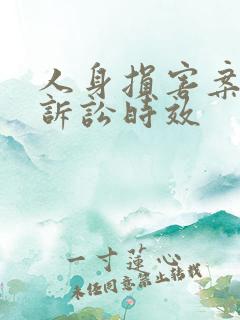 人身損害案
訴訟時效
一寸蓮心
未经同意禁止转载